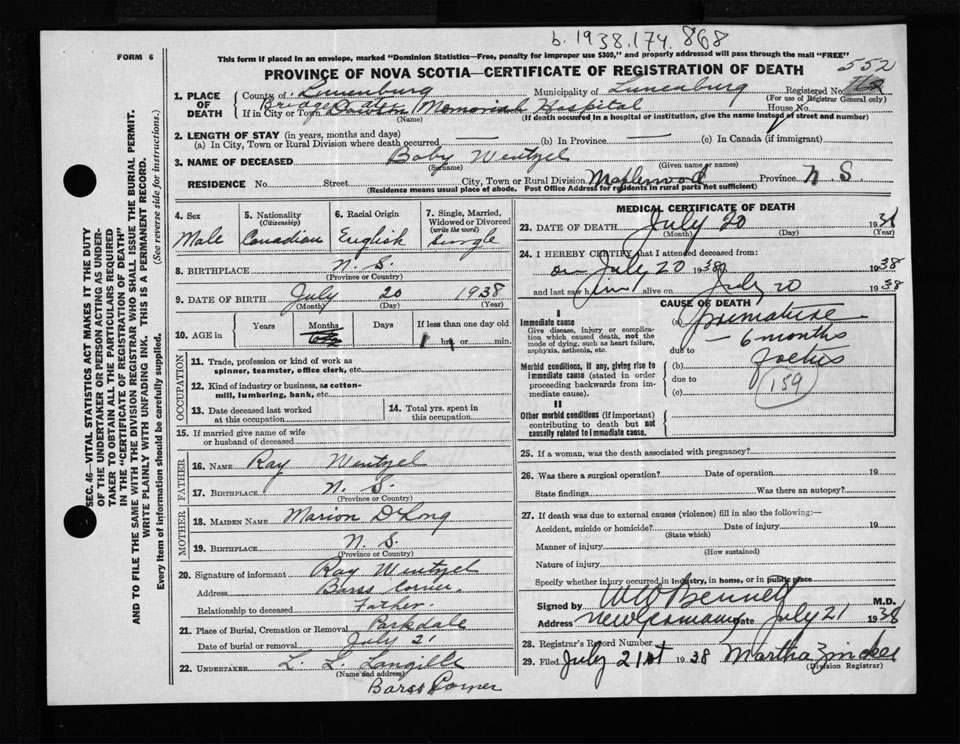 b. 1938.174.868
FORM 6
This form if placed in an envelope, marked "Dominion Statistics—Free, penalty for improper use $300," and properly addressed will pass through the mail "FREE"
552
PROVINCE OF NOVA SCOTIA—CERTIFICATE OF REGISTRATION OF DEATH
1. PLACE OF DEATH
County of Lunenburg Municipality of Lunenburg Registered No.
(For use of Registrar General only)
If in City or Town Memorial Hospital House No.
(Name) (If death occurred in a hospital or institution, give the name instead of street and number)
2. LENGTH OF STAY (in years, months and days)
(a) In City, Town or Rural Division where death occurred — (b) In Province — (c) In Canada (if immigrant)
3. NAME OF DECEASED Baby Wentzel
(Surname) (Given name or names)
RESIDENCE No. Street City, Town or Rural Division Maplewood Province N. S.
(Residence means usual place of abode. Post Office Address for residents in rural parts not sufficient)
4. Sex
Male
5. Nationality
(Citizenship)
Canadian
6. Racial Origin
English
7. Single, Married, Widowed or Divorced
(write the word)
Single
8. BIRTHPLACE N. S.
(Province or Country)
9. DATE OF BIRTH July 20 1938
(Month) (Day) (Year)
10. AGE in
Years Months Days If less than one day old
1 hrs. or min.
OCCUPATION
11. Trade, profession or kind of work as
spinner, teamster, office clerk, etc.
12. Kind of industry or business, as cotton-
mill, lumbering, bank, etc.
13. Date deceased last worked
at this occupation
14. Total yrs. spent in
this occupation
15. If married give name of wife
or husband of deceased
FATHER
16. NAME Ray Wentzel
17. BIRTHPLACE N. S.
(Province or Country)
MOTHER
18. MAIDEN NAME Marion DeLong
19. BIRTHPLACE N. S.
(Province or Country)
20. Signature of informant Ray Wentzel
Address Barss Corner.
Relationship to deceased Father.
21. Place of Burial, Cremation or Removal Parkdale
Date of burial or removal July 21
22. UNDERTAKER L. L. Langille
(Name and address)
Barss Corner
MEDICAL CERTIFICATE OF DEATH
23. DATE OF DEATH July 20 1938
(Month) (Day) (Year)
24. I HEREBY CERTIFY that I attended deceased from:
on July 20 1938 1938
and last saw him alive on July 20 1938
CAUSE OF DEATH
I
Immediate cause
Give disease, injury or complica-
tion which caused death, not the
mode of dying, such as heart failure,
asphyxia, asthenia, etc.
(a) premature
— 6 months
due to
Morbid conditions, if any, giving rise to
immediate cause (stated in order
proceeding backwards from im-
mediate cause).
(b) foetus
due to
(c)
159
II
Other morbid conditions (if important)
contributing to death but not
causally related to immediate cause.
25. If a woman, was the death associated with pregnancy?
26. Was there a surgical operation? Date of operation 19
State findings Was there an autopsy?
27. If death was due to external causes (violence) fill in also the following:—
Accident, suicide or homicide? Date of injury 19
(State which)
Manner of injury
(How sustained)
Nature of injury
Specify whether injury occurred in industry, in home, or in public place
Signed by W W Bennett M.D.
Address New Germany Date July 21 1938
28. Registrar's Record Number
29. Filed July 21st 1938 Martha Zinck
(Division Registrar)
SEC. 46—VITAL STATISTICS ACT MAKES IT THE DUTY
OF THE UNDERTAKER OR PERSON ACTING AS UNDER-
TAKER TO OBTAIN ALL THE PARTICULARS REQUIRED
IN THE "CERTIFICATE OF REGISTRATION OF DEATH"
AND TO FILE THE SAME WITH THE DIVISION REGISTRAR WHO SHALL ISSUE THE BURIAL PERMIT.
WRITE PLAINLY WITH UNFADING INK. THIS IS A PERMANENT RECORD.
Every item of information should be carefully supplied. (See reverse side for instructions.)